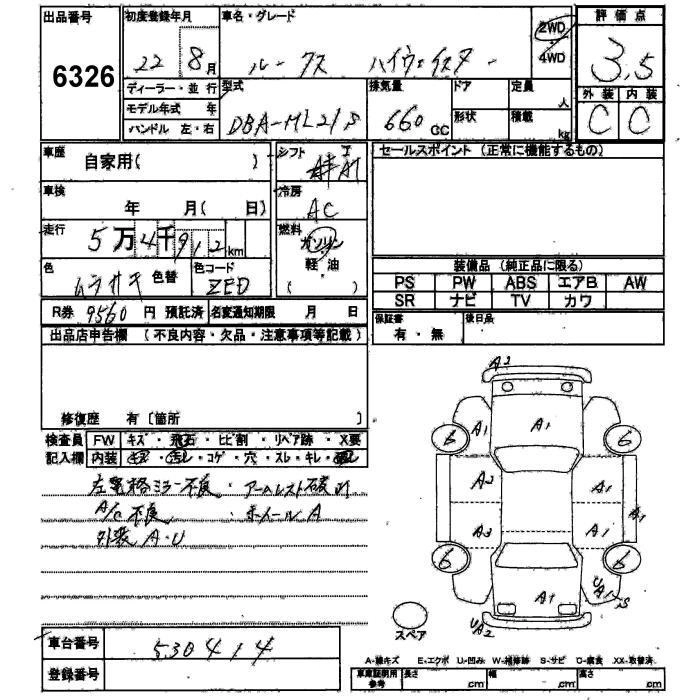 出品番号 初度登録年月 車名・グレード 評価点
6326 22 8月 ルークス ハイウェイスター 2WD 4WD 3.5
ディーラー・並行 型式 排気量 ドア 定員 人 外装 内装
モデル年式 年 DBA-ML21S 660 CC 形状 積載 kg C C
ハンドル 左・右
車歴 自家用( ) シフト AT セールスポイント (正常に機能するもの)
車検 年 月( 日) 冷房 AC
走行 5万4千912km 燃料 ガソリン 軽油 ( )
色 ムラサキ 色替 色コード ZED
装備品 (純正品に限る)
PS PW ABS エアB AW
SR ナビ TV カワ
R券 9560 円 預託済 名変通知期限 月 日
保証書 有・無 後日品
出品店申告欄 (不良内容・欠品・注意事項等記載)
修復歴 有 〔箇所 〕
検査員 FW キズ・飛石・ヒビ割・リペア跡・X要
記入欄 内装 ・コゲ・穴・スレ・キレ・
左電格ミラー不良・アームレスト破れ
A/C不良 ・ホイールA
外装A・U
A2
A1 A1
6 6
A2 A1
A3 A1 A1
6 6
A1 UA1 S
UA2
スペア
車台番号 530414
登録番号
A-線キズ E-エクボ U-凹み W-補修跡 S-サビ C-腐食 XX-取替済
車庫証明用参考 長さ cm 幅 cm 高さ cm